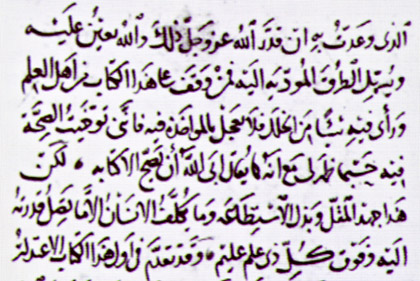 الذى وعدت به ان قدر الله عز وجل ذلك والله يعين عليه
ويسهل الطرق المودية اليه فمن وقف على هذا الكتاب من اهل العلم
ورأى فيه شيئا من الخلل فلا يعجل بالمواخذة فيه فانى توخيت الصحة
فيه حسبما ظهر لى مع انه كما يقال ابى الله أن يصح الا كتابه لكن
هذا جهد المقل وبذل الاستطاعة وما يكلف الانسان الا ما تصل قدرته
اليه وفوق كل ذى علم عليم وقد تقدم فى اول هذا الكتاب الاعتذار